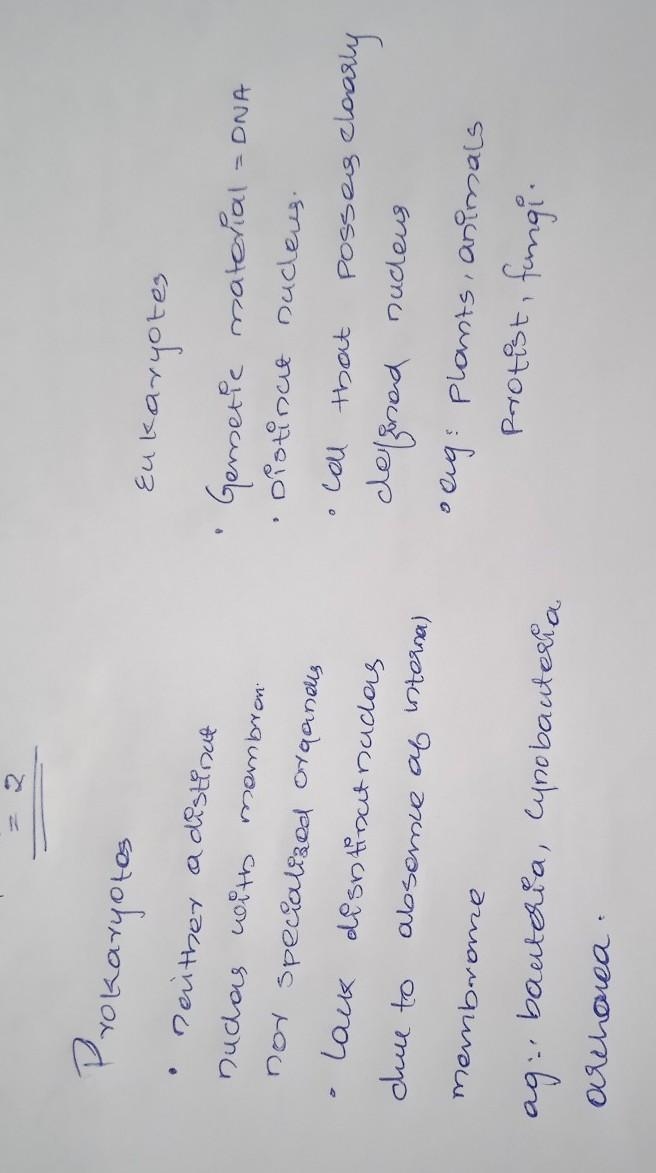 = 2
Prokaryotes
• neither a distinct
nucleus with membran.
nor specialized organells
• Lack disntinct nucleus
due to absence of internal
membrane
eg:- bacteria, cynobacteria,
archaea.
Eukaryotes
• Genetic material = DNA
• Distinct nucleus.
• Cell that possess clearly
defined nucleus
• eg: Plants, animals
Protist, fungi.